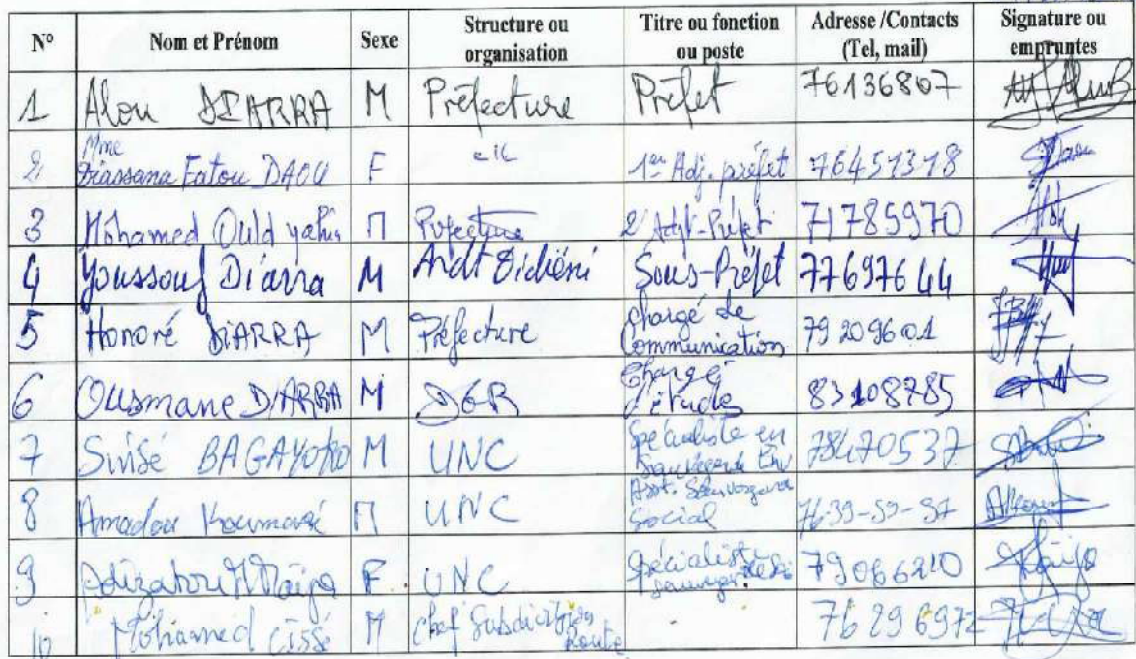 N° Nom et Prénom Sexe Structure ou organisation Titre ou fonction ou poste Adresse /Contacts (Tel, mail) Signature ou empruntes
1 Alou DIARRA M Préfecture Préfet 76136807
2 Mme Diassana Fatou DAOU F 1er Adj. préfet 76451318
3 Mohamed Ould yahia M Préfecture 2e Adjt-Préfet 71785970
4 Youssouf Diarra M Ardt Didiéni Sous-Préfet 77697644
5 Honoré DIARRA M Préfecture chargé de Communication 79209601
6 Ousmane DIARRA M DGR Chargé d'études 83108785
7 BAGAYOKO M UNC Spécialiste en Sauvegarde Env 78470537
8 Amadou M UNC Social
9 Maiga F UNC Spécialiste 79066210
10 Mohamed Cissé M Chef Subdivision Route 76296972